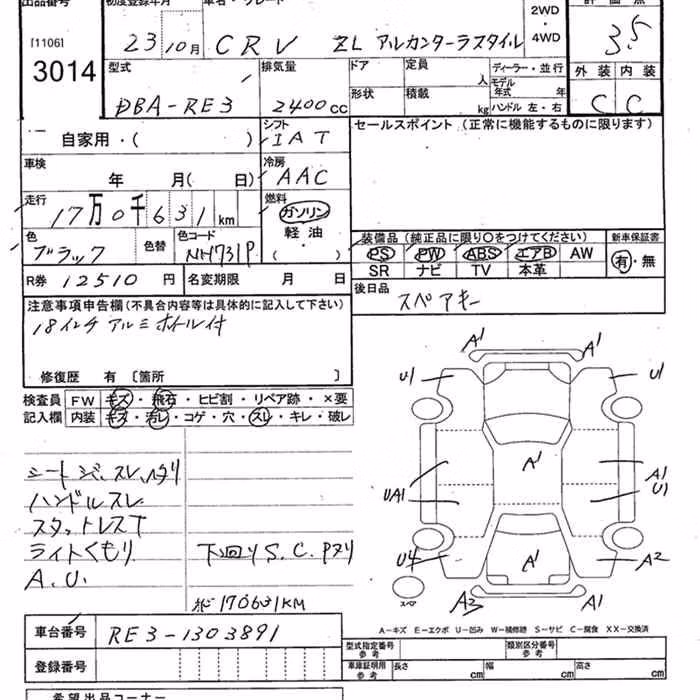 出品番号 初度登録年月 車名・グレード 評価点
[1106] 2WD
3014 23 10月 CRV ZL アルカンターラスタイル ・4WD 3.5
型式 排気量 ドア 定員 人 ディーラー・並行 外装 内装
DBA-RE3 2400cc 形状 積載 kg モデル年式 年 C C
ハンドル 左・右
自家用・( ) シフト IAT セールスポイント (正常に機能するものに限ります)
車検 年 月( 日) 冷房 AAC
走行 17万0千631km 燃料 ガソリン
軽油
( )
色 ブラック 色替 色コード NH731P
装備品 (純正品に限り○をつけてください) 新車保証書
PS PW ABS エアB AW 有・無
SR ナビ TV 本革
R券 12510円 名変期限 月 日 後日品 スペアキー
注意事項申告欄(不具合内容等は具体的に記入して下さい)
18インチアルミホイル付
修復歴 有 〔箇所 〕
検査員 FW キズ・飛石・ヒビ割・リペア跡・×要
記入欄 内装 キズ・汚レ・コゲ・穴・スレ・キレ・破レ
A1 A1
U1 U1
A1
UA1 A1 U1
U4 A1 A2
A3 A1
スペア
ハンドルスレ
スタットレスT
ライトくもり 下回りS.C.
A.U.
170631KM
A-キズ E-エクボ U-凹み W-補修跡 S-サビ C-腐食 XX-交換済
車台番号 RE3-1303891
型式指定番号 参考 類別区分番号 参考
登録番号 車庫証明用 参考 長さ cm 幅 cm 高さ cm
希望出品コーナー